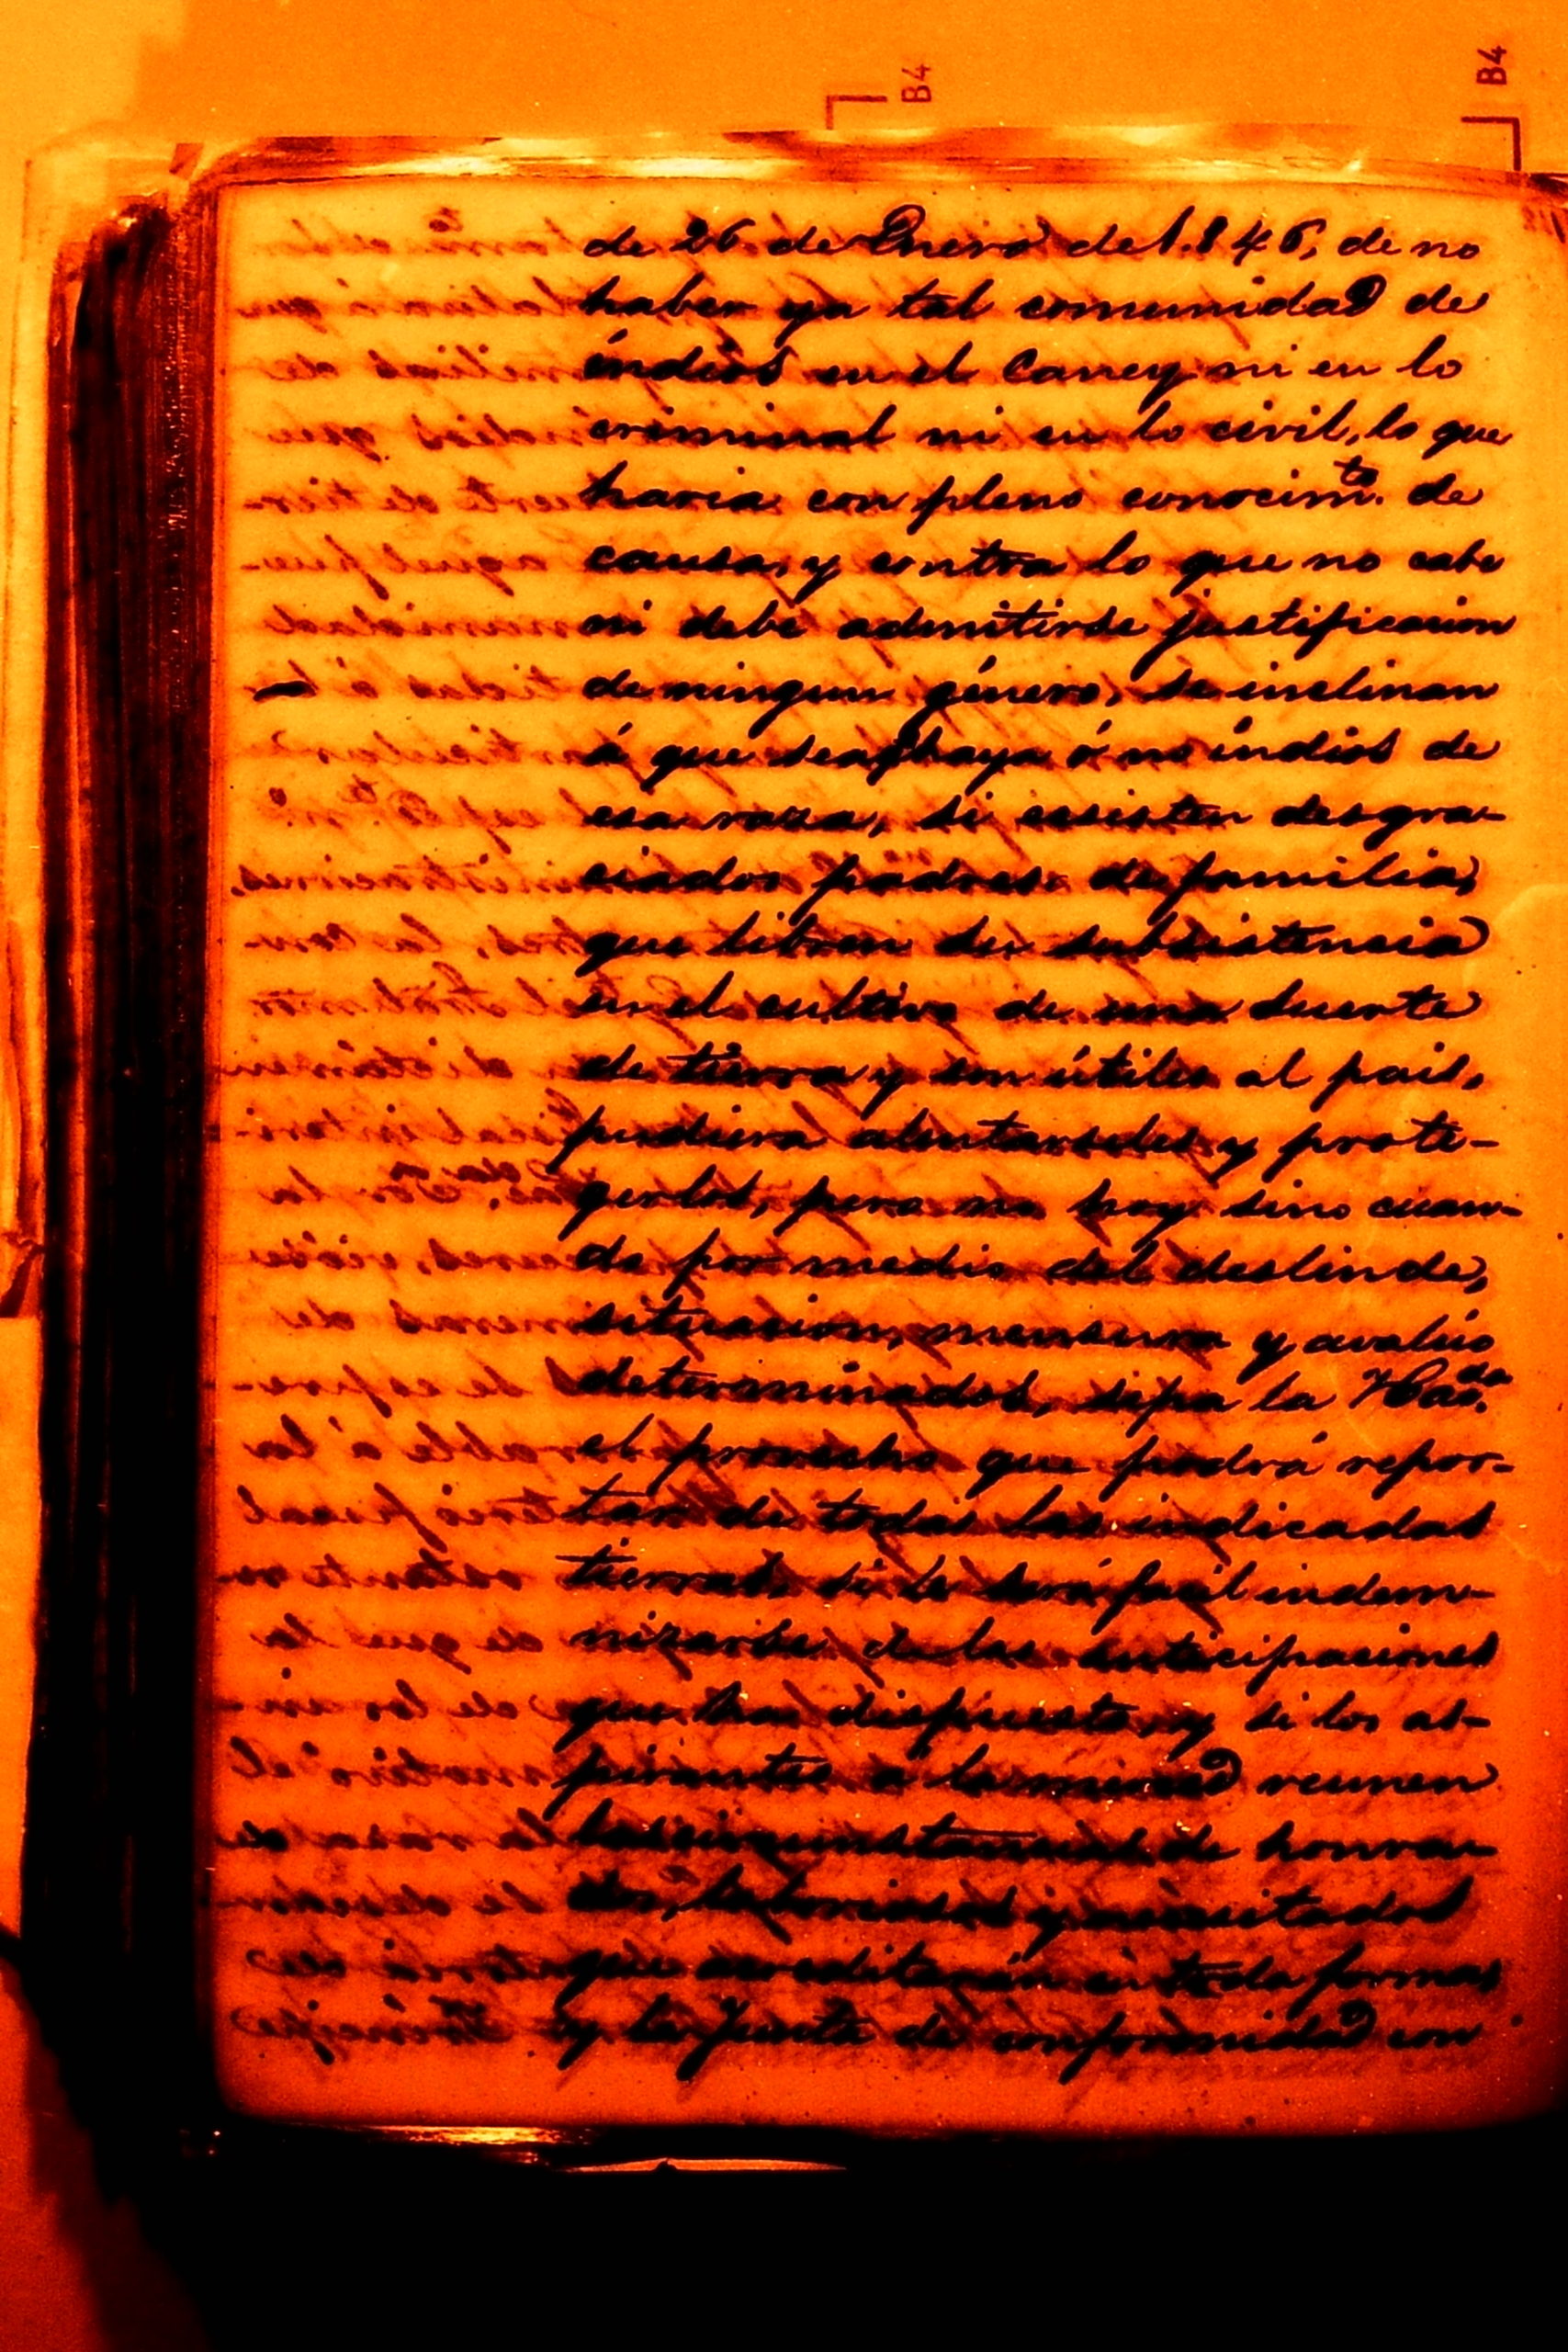 B4
B4
de 26 de Enero de 1.846, de no
haber ya tal comunidad de
indios en el Caney ni en lo
criminal ni en lo civil, lo que
haria con pleno conocimto. de
causa, y contra lo que no cabe
ni debe admitirse justificacion
de ningun género, se inclinan
á que sea, haya ó no indios de
esa raza, si ecsisten desgra-
ciados padres de familia,
que libren su subsistencia
en el cultivo de una suerte
de tierra y son útiles al pais,
pudiera alentarseles y prote-
gerlos, pero no hoy sino cuan-
do por medio del deslinde,
situacion, mensura y avalúo
determinados, sepa la Hacda.
el provecho que podrá repor-
tar de todas las indicadas
tierras, si le será facil indem-
nizarse de las anticipaciones
que ha dispuesto, y si los as-
pirantes á la merced reunen
las circunstancias de honra-
dos, laboriosos y necesitados
que acreditarán en toda forma,
y la Junta de conformidad con